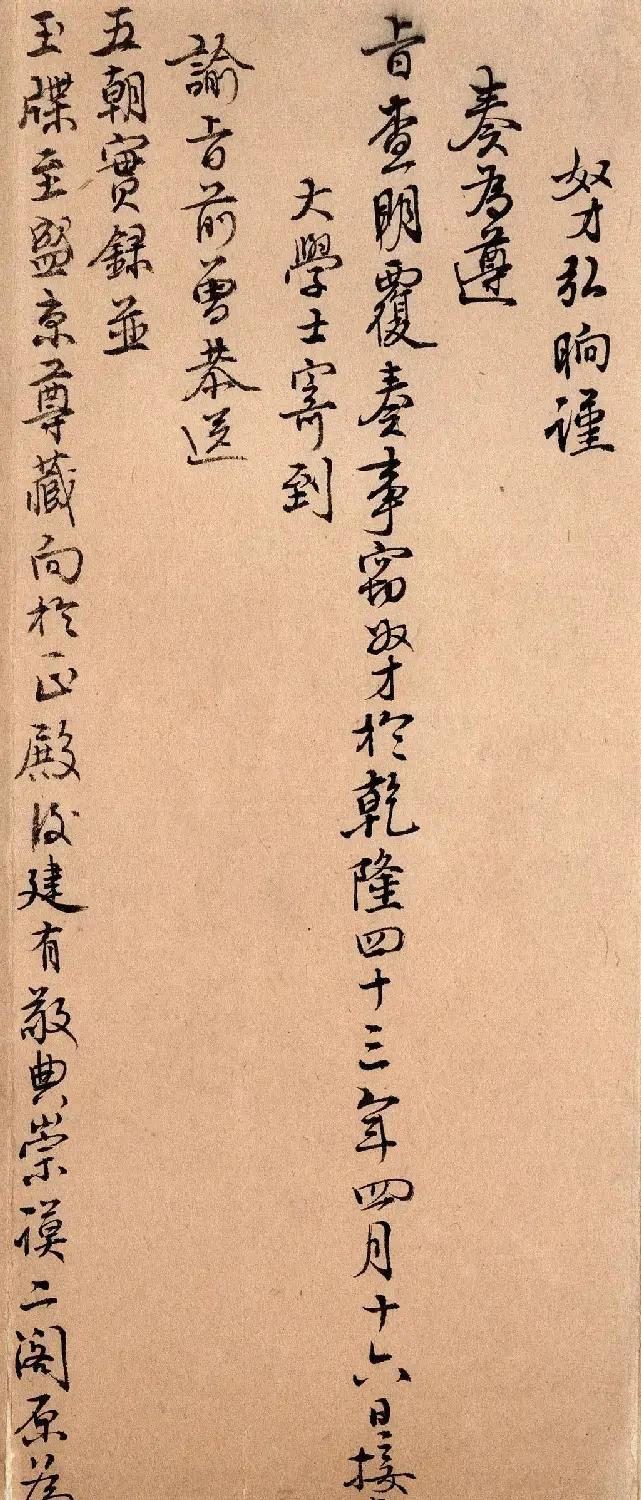 奴才弘晌謹
奏為遵
旨查明覆奏事竊奴才於乾隆四十三年四月十六日接
大學士寄到
諭旨前曾恭送
五朝實錄並
玉牒至盛京尊藏向於正殿後建有敬典崇謨二閣原為